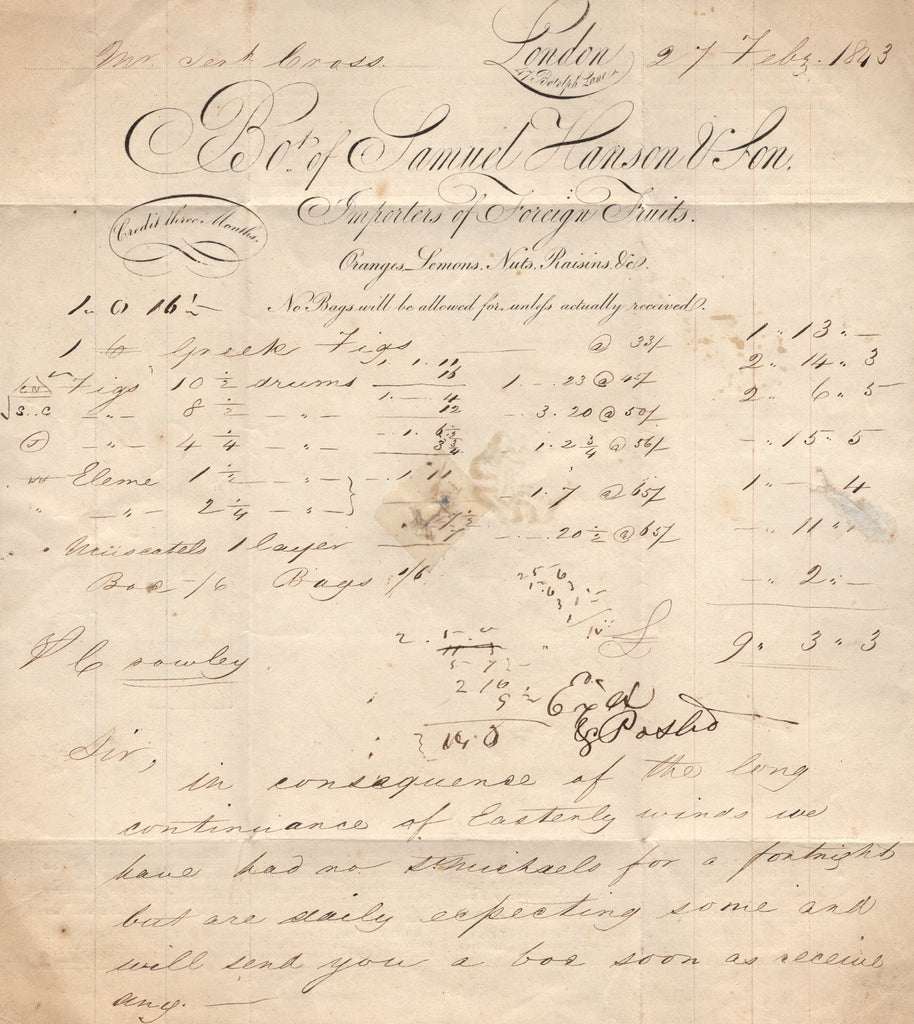 Mr. Cross. London 27 Feby. 1843
47 Botolph Lane
Bot. of Samuel Hanson & Son.
Importers of Foreign Fruits.
Credit three Months.
Oranges, Lemons, Nuts, Raisins, &c.
1 . 0 16 No Bags will be allowed for, unless actually received.
1 Greek Figs @ 33/ 1 " 13 " -
Figs 10 1/2 drums 1 . 1 . 11 16 1 . - . 23 @ 45/ 2 " 14 " 3
S.C - " - 8 1/2 - " - 1 . - . 4 12 - 3 . 20 @ 50/ 2 " 6 " 5
- " - 4 1/4 - " - - 1 . 2 3/4 @ 56/ - " 15 " 5
Eleme 1 1/2 - " - - 1 . 11 - 1 . 7 @ 65/ 1 " - " 4
- " - 2 1/4 - " -
Muscatels 1 layer - . - . 20 1/2 @ 65/ - " 11 " 1
Box -/6 Bags 1/6 - " 2 " -
£ 9 " 3 " 3
P C rowley
Exd
& Postd
Sir,
in consequence of the long
continuance of Easterly winds we
have had no St Michaels for a fortnight
but are daily expecting some and
will send you a box soon as receive
any. —